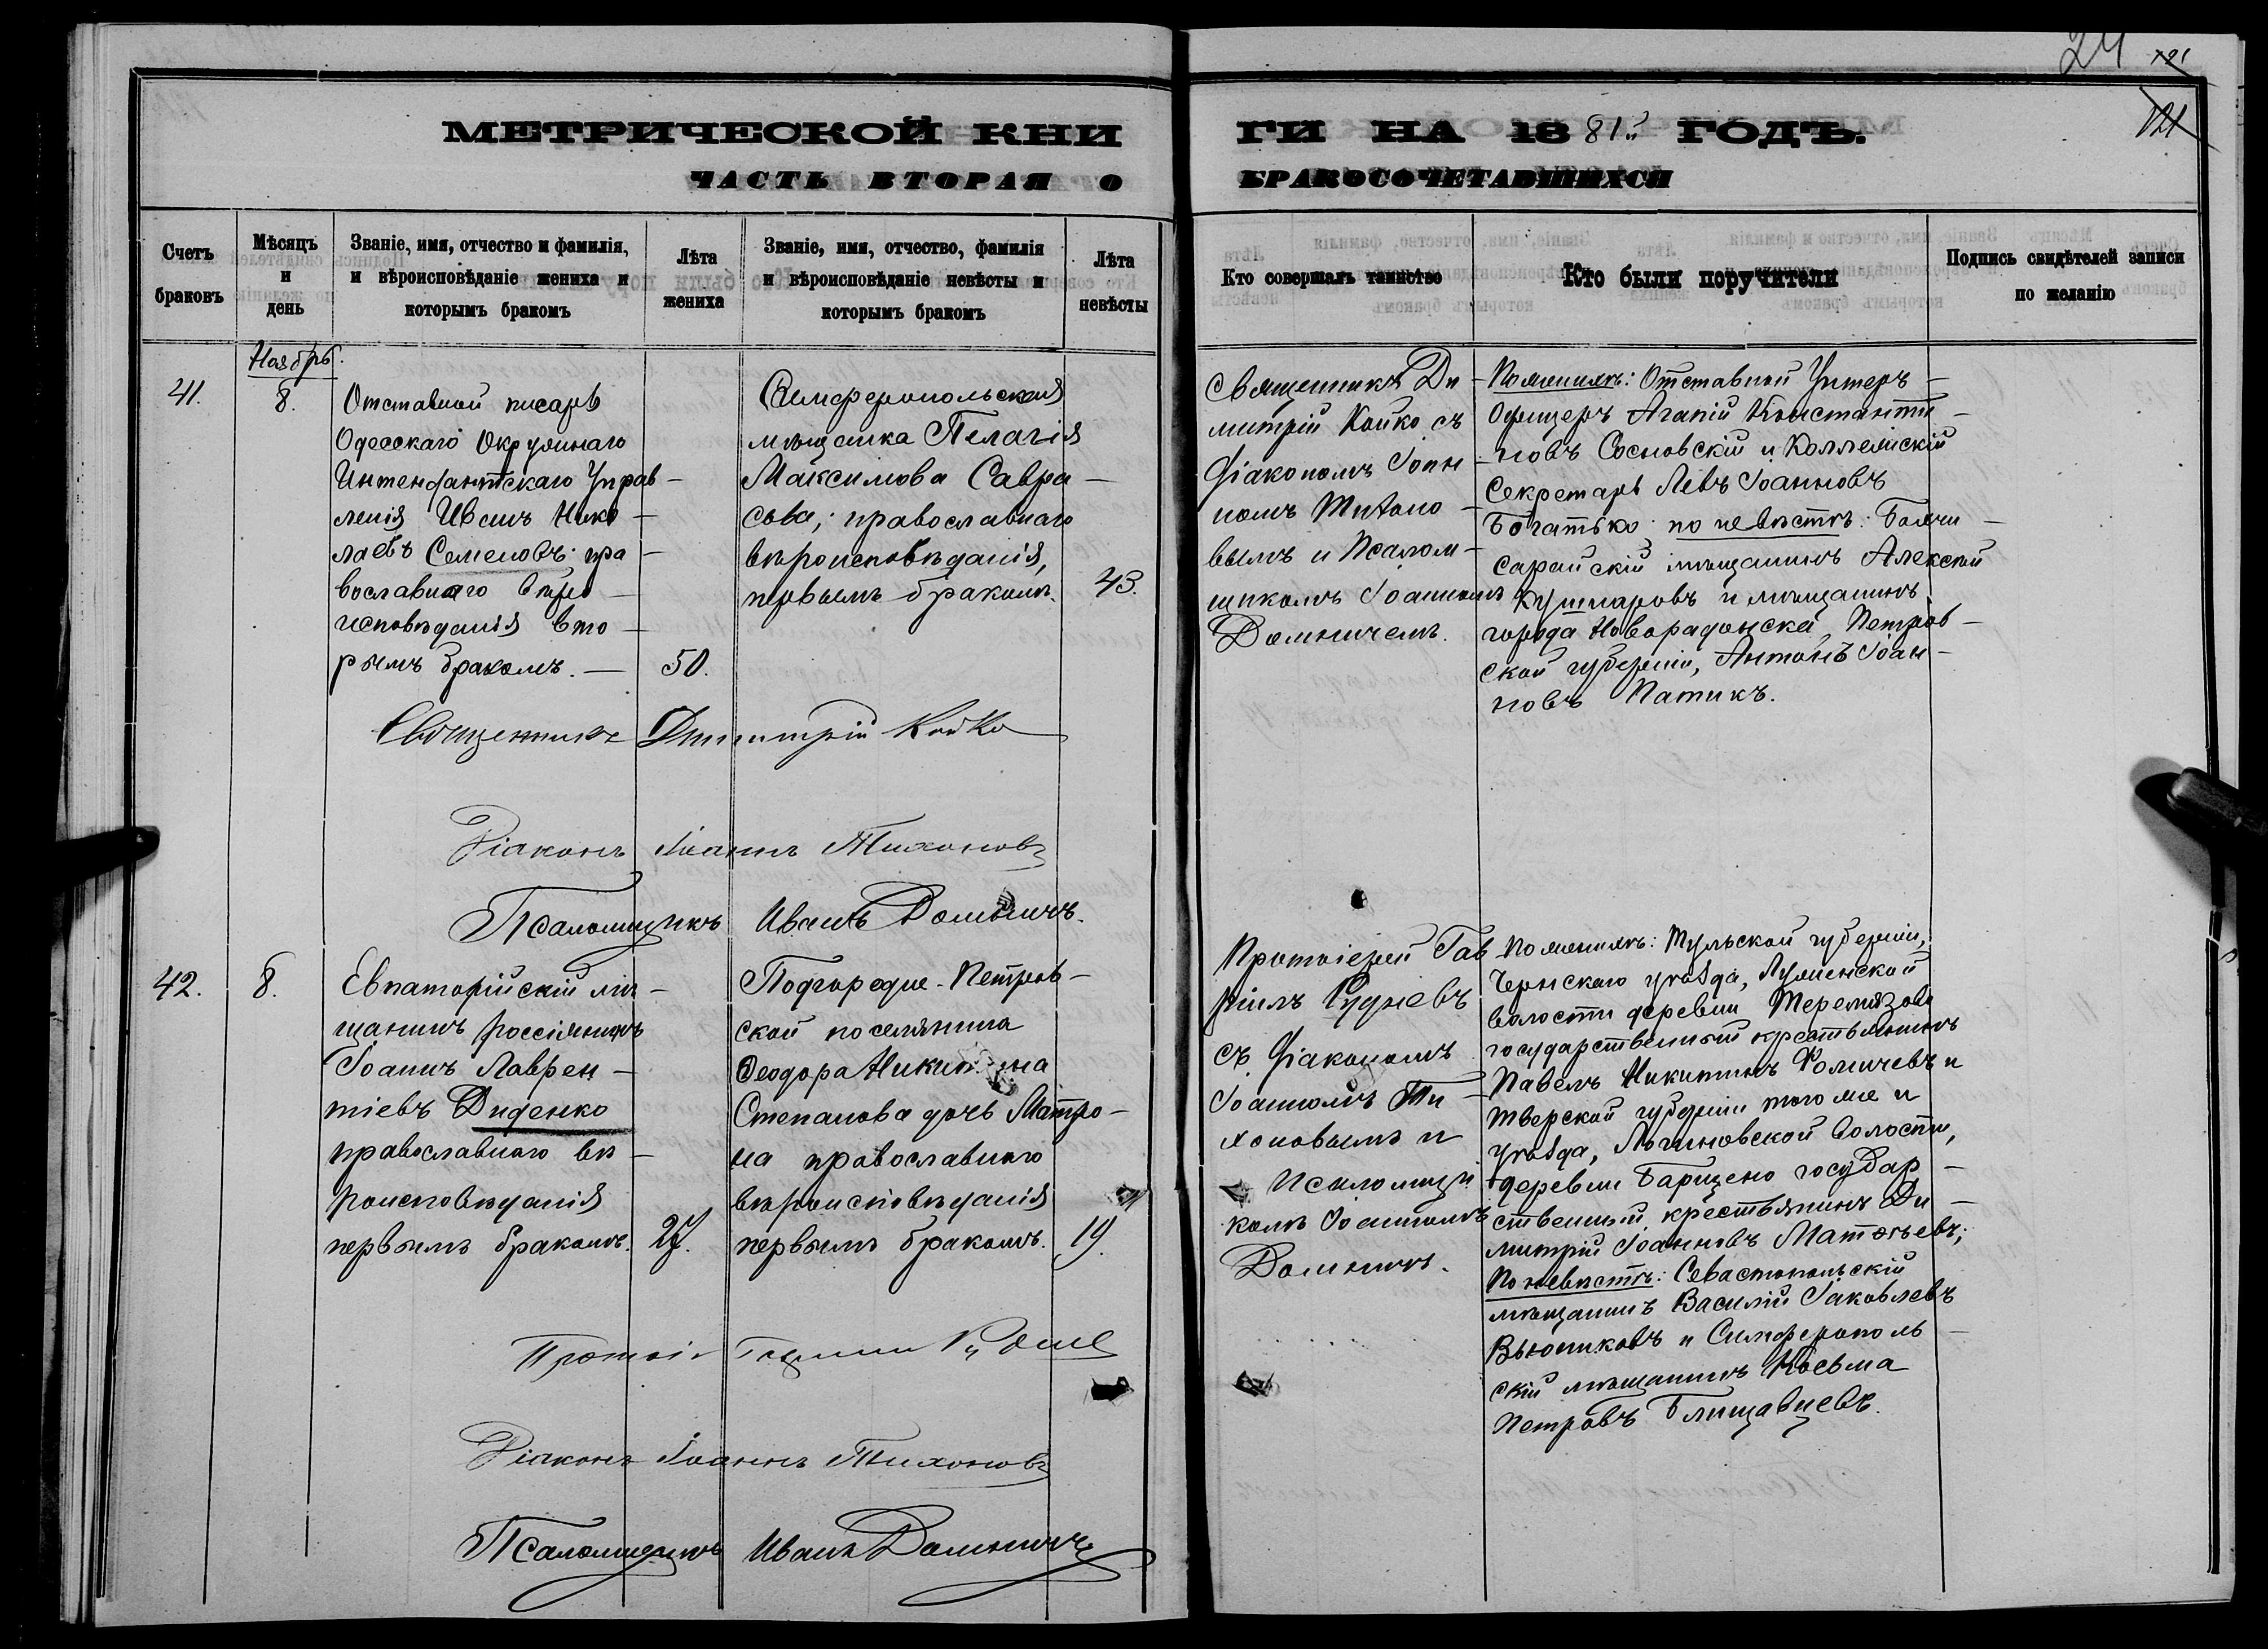 24 121
121
МЕТРИЧЕСКОЙ КНИ
ГИ НА 1881й ГОДЪ.
ЧАСТЬ ВТОРАЯ О
БРАКОСОЧЕТАВШИХСЯ
Счетъ браковъ
Мѣсяцъ и день
Званіе, имя, отчество и фамилія,
и вѣроисповѣданіе жениха и
которымъ бракомъ
Лѣта жениха
Званіе, имя, отчество, фамилія
и вѣроисповѣданіе невѣсты и
которымъ бракомъ
Лѣта невѣсты
Кто совершалъ таинство
Кто были поручители
Подпись свидѣтелей записи
по желанію
Ноябрь.
41.
8.
Отставной писарь
Одесскаго Окружнаго
Интендантскаго Управ-
ленія Иванъ Нико-
лаевъ Семеновъ пра-
вославнаго вѣро-
исповѣданія вто-
рымъ бракомъ.—
50.
Симферопольская
мѣщанка Пелагія
Максимова Савра-
сова, православнаго
вѣроисповѣданія,
первымъ бракомъ.
43.
Священникъ Ди-
митрій Койко съ
Діакономъ Іоан-
номъ Тихоно-
вымъ и Псалом-
щикомъ Іоанномъ
Домничемъ.
По женихѣ: Отставной Унтеръ-
Офицеръ Агапій Константи-
новъ Сосновскій и Коллежскій
Секретарь Левъ Іоанновъ
Богатько; по невѣстѣ: Бахчи-
сарайскій мѣщанинъ Алексѣй
Кушнаровъ и мѣщанинъ
городаНоворадомска, Петров-
ской губерніи, Антонъ Іоан-
новъ Патикъ.
Священникъ Димитрій Койко
Діаконъ Іоаннъ Тихоновъ
Псаломщикъ Иванъ Домничъ.
42.
8.
Евпаторійскій мѣ-
щанинъ россіянинъ
Іоаннъ Лаврен-
тіевъ Диденко
православнаго вѣ-
роисповѣданія
первымъ бракомъ.
27.
Подгородне-Петров-
ской поселянина
Ѳеодора Никитина
Степанова дочь Матро-
на православнаго
вѣроисповѣданія
первымъ бракомъ.
19.
Протоіерей Гав
ріилъ Рудневъ
съ Діакономъ
Іоанномъ Ти-
хоновымъ и
Псаломщи
комъ Іоанномъ
Домничъ.
По женихѣ: Тульской губерніи,
Чернскаго уѣзда,
волости деревни
государственный крестьянинъ
Павелъ Никитинъ Фомичевъ и
Тверской губерніи того же и
уѣзда, Логиновской волости,
деревни государ-
ственный крестьянинъ Ди-
митрій Іоанновъ Матвѣевъ;
По невѣстѣ: Севастопольскій
мѣщанинъ Василій Іаковлевъ
Вьюнковъ и Симферополь-
скій мѣщанинъ Косьма
Петровъ
Діаконъ Іоаннъ Тихоновъ
Псаломщикъ Иванъ Домничъ